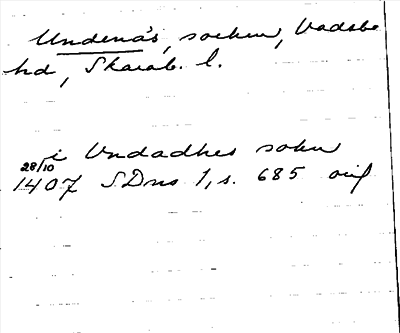 Undenäs, socken, Vadsbo
hd, Skarab. l.
i Vndadhes sokn
28/10
1407 SDns 1, s. 685 orig